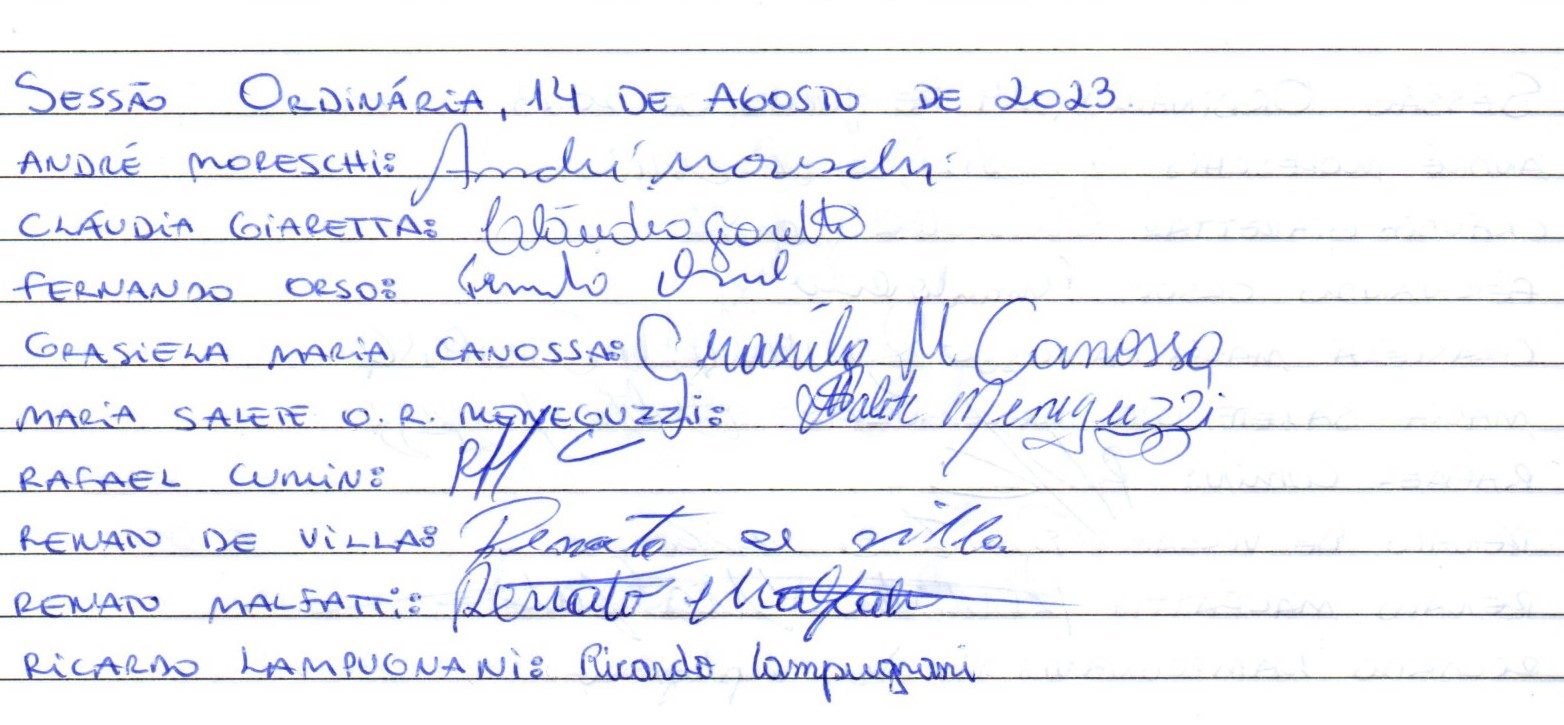 SESSÃO ORDINÁRIA, 14 DE AGOSTO DE 2023
ANDRÉ MORESCHI: André Moreschi
CLÁUDIA GIARETTA: Cláudia Giaretta
FERNANDO ORSO:
GRASIELA MARIA CANOSSA: Grasiela M Canossa
MARIA SALETE O.R. MENEGUZZI: Salete Meneguzzi
RAFAEL CUMIN:
RENATO DE VILLA: Renato de villa
RENATO MALFATTI: Renato Malfatti
RICARDO LAMPUGNANI: Ricardo Lampugnani